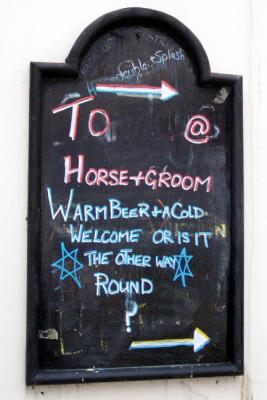 double + Splash
To @
HORSE + GROOM
WARM BEER + A COLD
WELCOME OR IS IT
THE OTHER WAY
ROUND
?